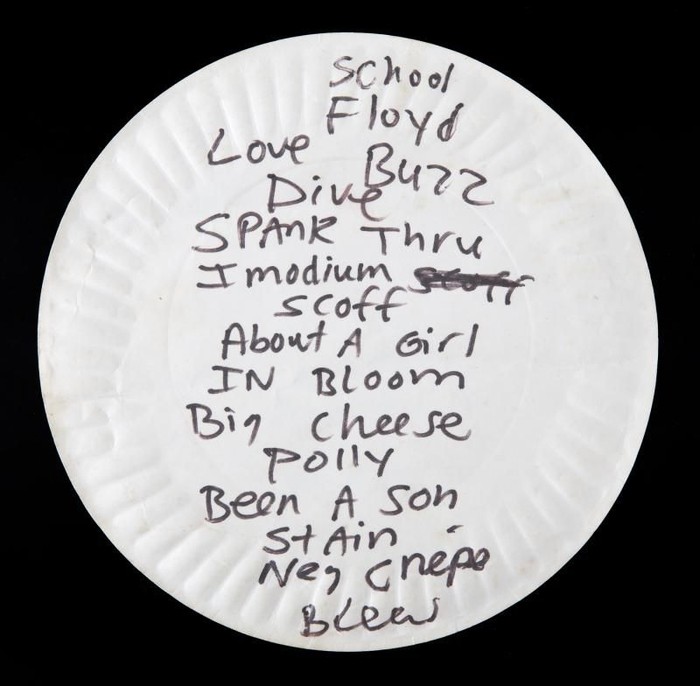 School
Floyd
Love Buzz
Dive
SPANK Thru
Imodium Scoff
Scoff
About A Girl
IN Bloom
Big Cheese
Polly
Been A Son
StAin
Neg Crepe
Blew